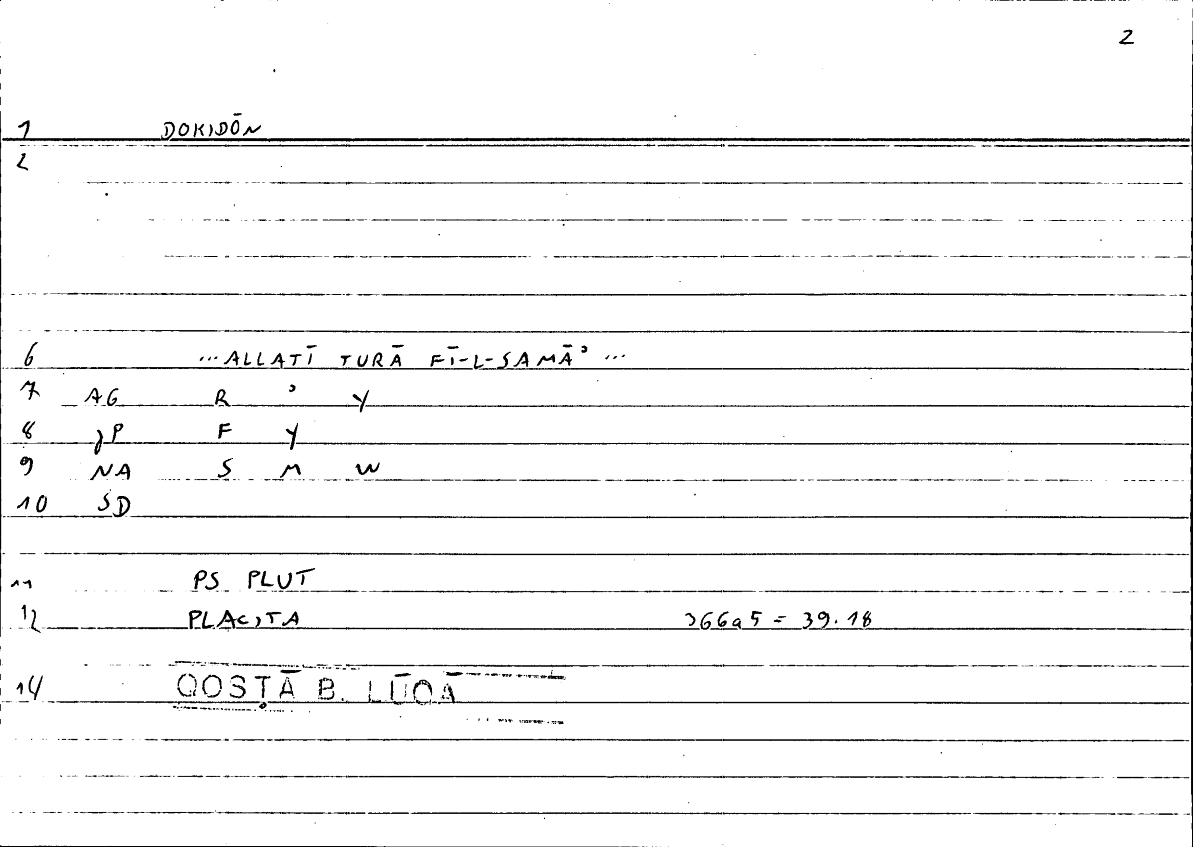 2
1 DOKIDŌN
2
6 ...ALLATĪ TURĀ FĪ-L-SAMĀʾ...
7 AG R ʾ Y
8 JP F Y
9 NA S M W
10 SD
11 PS PLUT
12 PLACITA 366a5 = 39.18
14 QOSṬĀ B. LŪQĀ